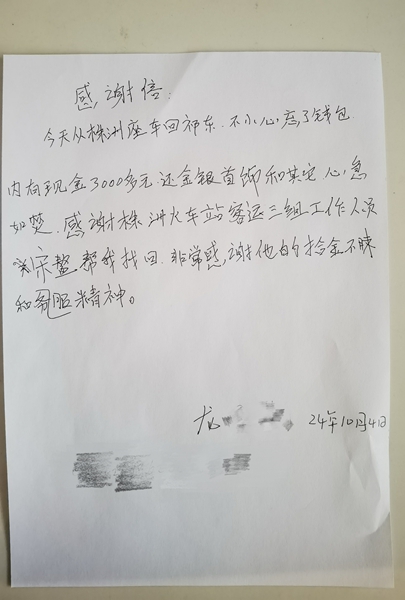 感谢信:
今天从株洲座车回祁东.不小心忘了钱包.
内有现金3000多元.还金银首饰和其它心急
如焚.感谢株洲火车站客运三组工作人员
宗鳌帮我找回.非常感谢他的拾金不昧
和服精神。
龙
24年10月4日